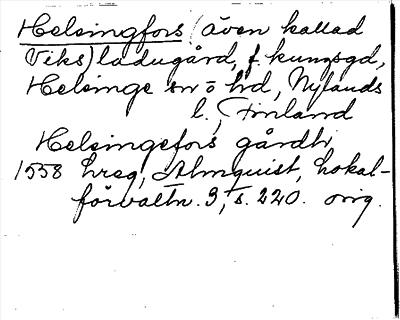 Helsingfors (även kallad
Viks) ladugård, f. kungsgd,
Helsinge sn o hd, Nylands
l., Finland
Helsingefors gårdh
1558 hreg, Almquist, Lokal-
förvaltn. 3, s. 220. orig.